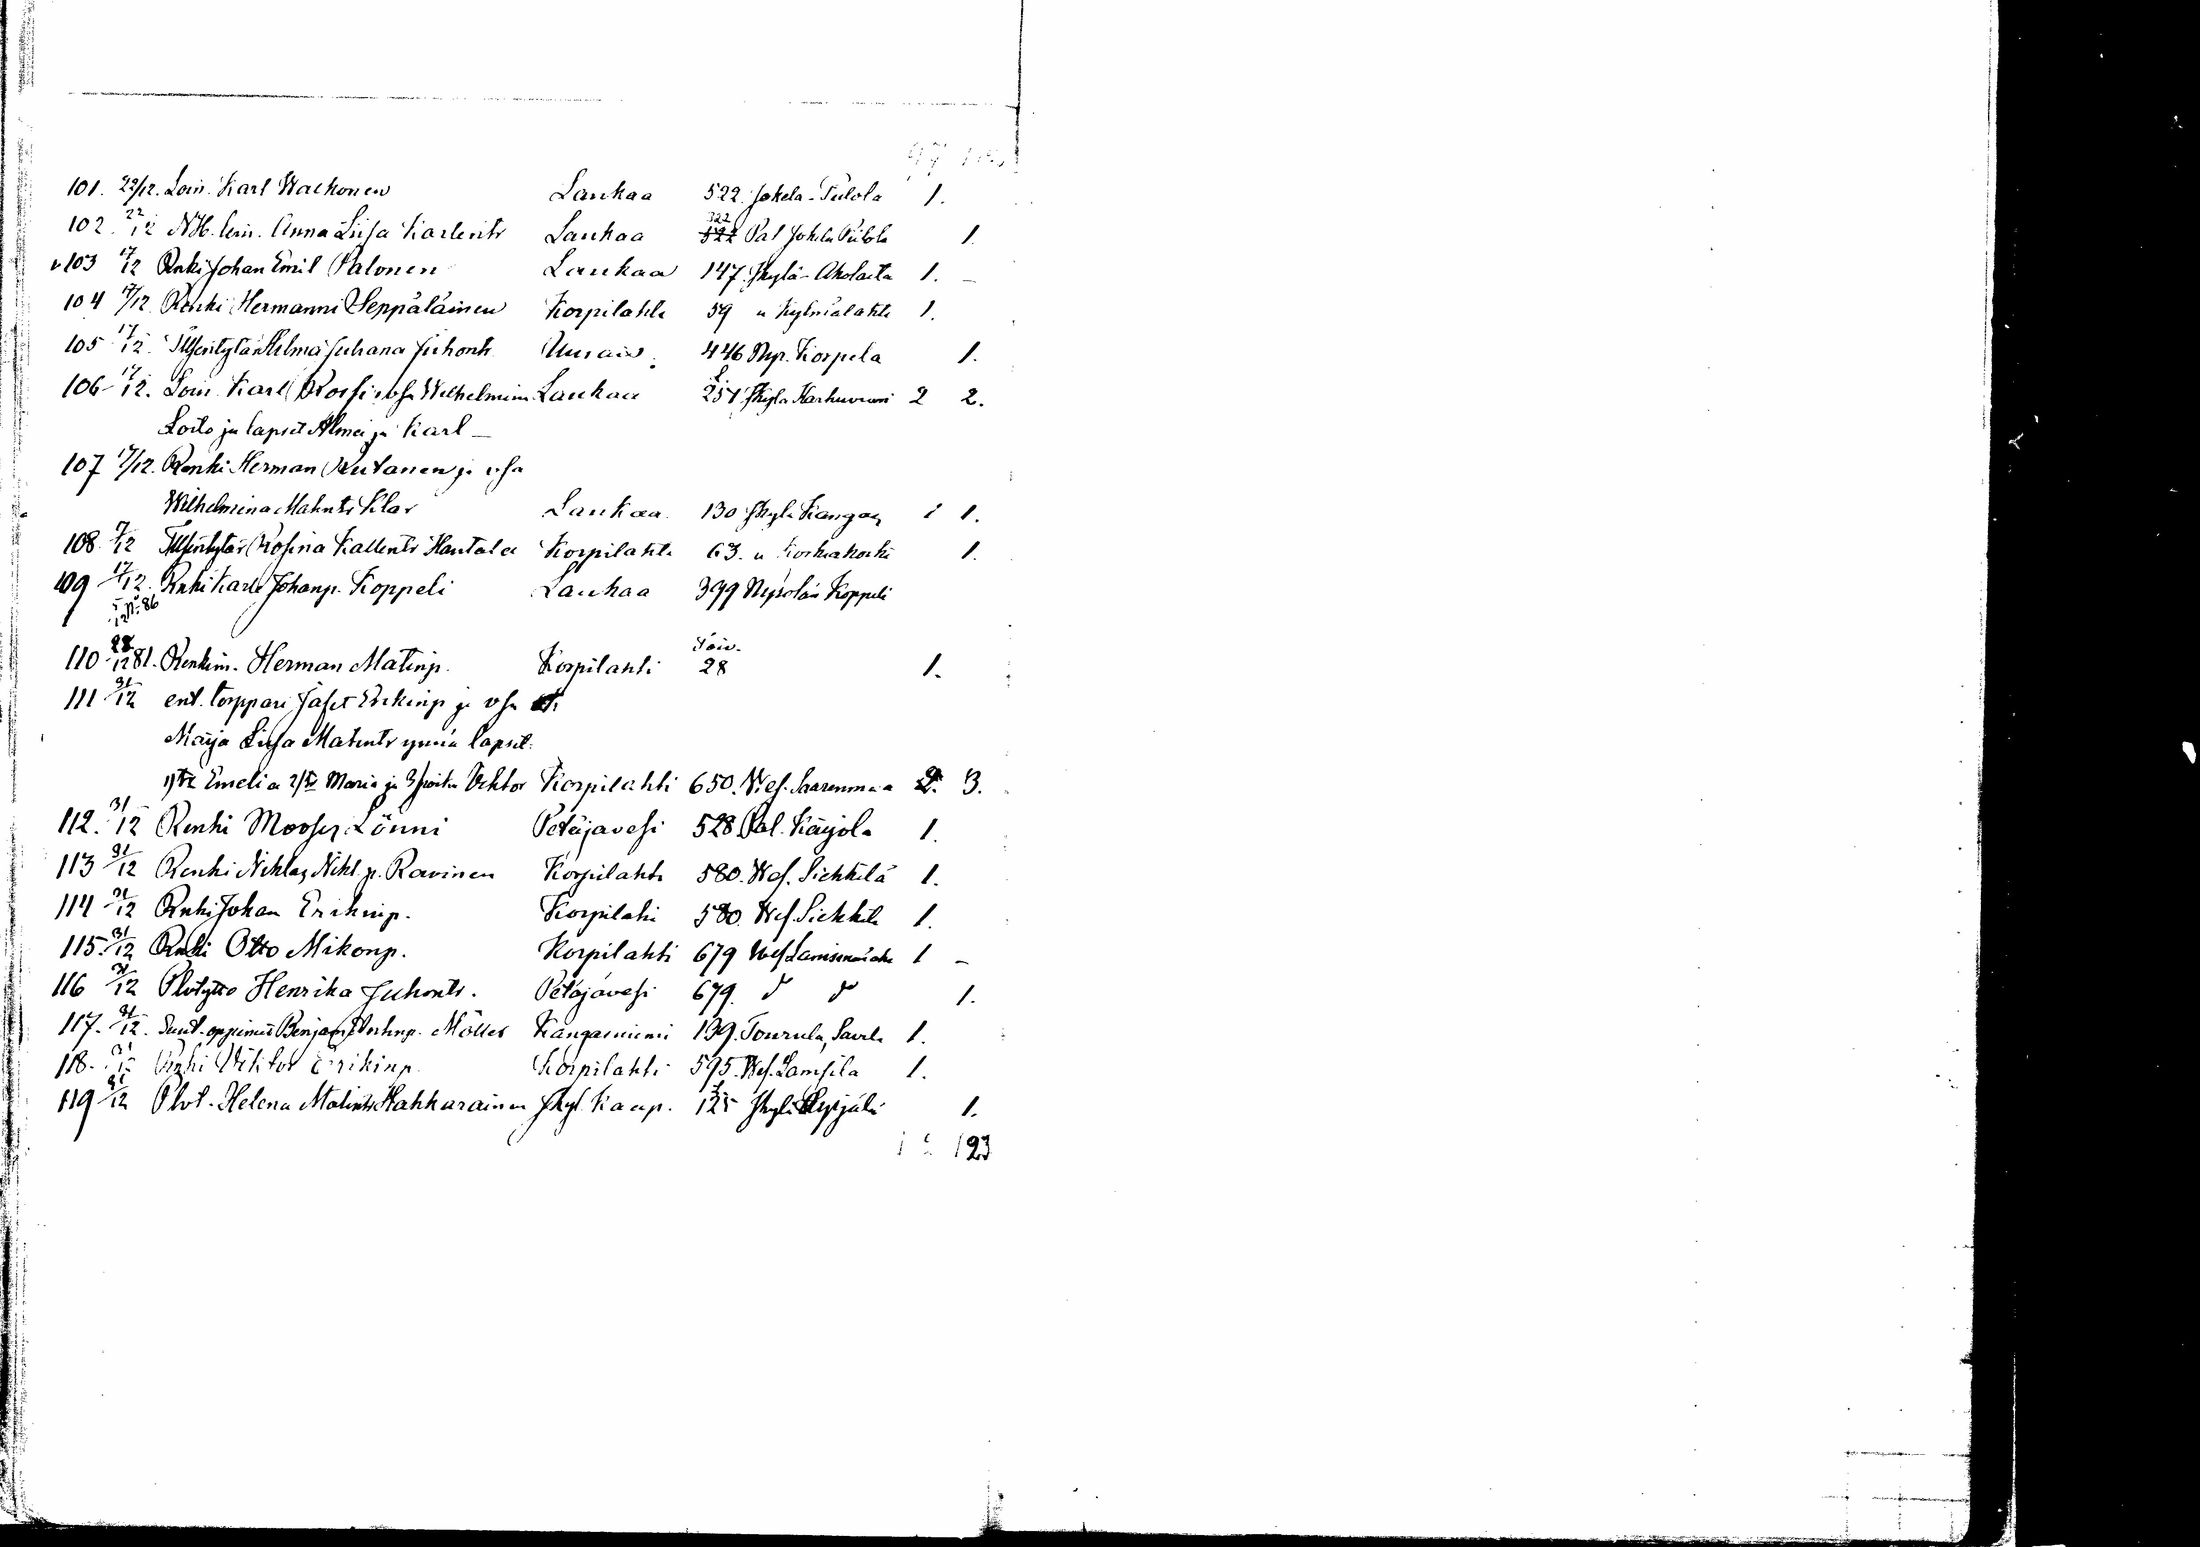 101. 22/12. Lois. Karl Wackonen Laukaa 522. Jokela-Pulola 1.
102. 22/12 Anna Liisa Karlentr Laukaa 322 Pal Jokela Pulola 1.
103 17/12 Renki Johan Emil Palonen Laukaa 147. Jkylä- Aholaita 1. -
104 17/12 Renki Hermanni Seppäläinen Korpilahti 59 " Kylmälahti 1.
105 17/12. Juhana Juhontr Uurais. 446 Nyr. Korpela 1.
106 17/12. Lois. Karl Rossi vsa Wilhelmina Laukaa Jkylä 2 2.
Loito ja lapset Alma ja Karl —
107 17/12. Renki Herman Rutanen ja vsa
Wilhelmina Matintr Klar Laukaa. 130 Jkylä Kangas 1 1.
108. 17/12 Itsellistytär Rosina Kallentr Hautala Korpilahti 63. " Koskakoski 1.
109 17/12. Renki Karl Johanp. Koppeli Laukaa 399 Koppeli
86
110 28/12 81. Renkim. Herman Matinp. Korpilahti 28 1.
111 31/12 ent. torppari Jafet Erkinp ja vsa
Maija Liisa Matintr ynnä lapset:
1/tr Emelia 2/tr Maria ja 3/poika Vihtor Korpilahti 650. Wes. Saarenmaa 2. 3.
112. 31/12 Renki Mooses Lönni Petäjävesi 528 Pal. Kärjola 1.
113 31/12 Renki Niklas Nikl.p. Ravinen Korpilahti 580. Wes. Siekkilä 1.
114 31/12 Renki Johan Erikinp. Korpilahi 580. Wes. Siekkilä 1.
115. 31/12 Renki Otto Mikonp. Korpilahti 679 Wes 1 -
116 31/12 Plvtyttö Henrika Juhontr. Petäjävesi 679. d d 1.
117. 31/12. Suut. oppimus Benjam Möller Kangasniemi 139. Tourula, Savela 1.
118. 31/12 Renki Vihtor Erikinp. Korpilahti 595. Wes. Lamsila 1.
119 31/12 Plvt. Helena Matintr Hahkarainen Jkyl. Kaup. 125 Jkylä 1.
123